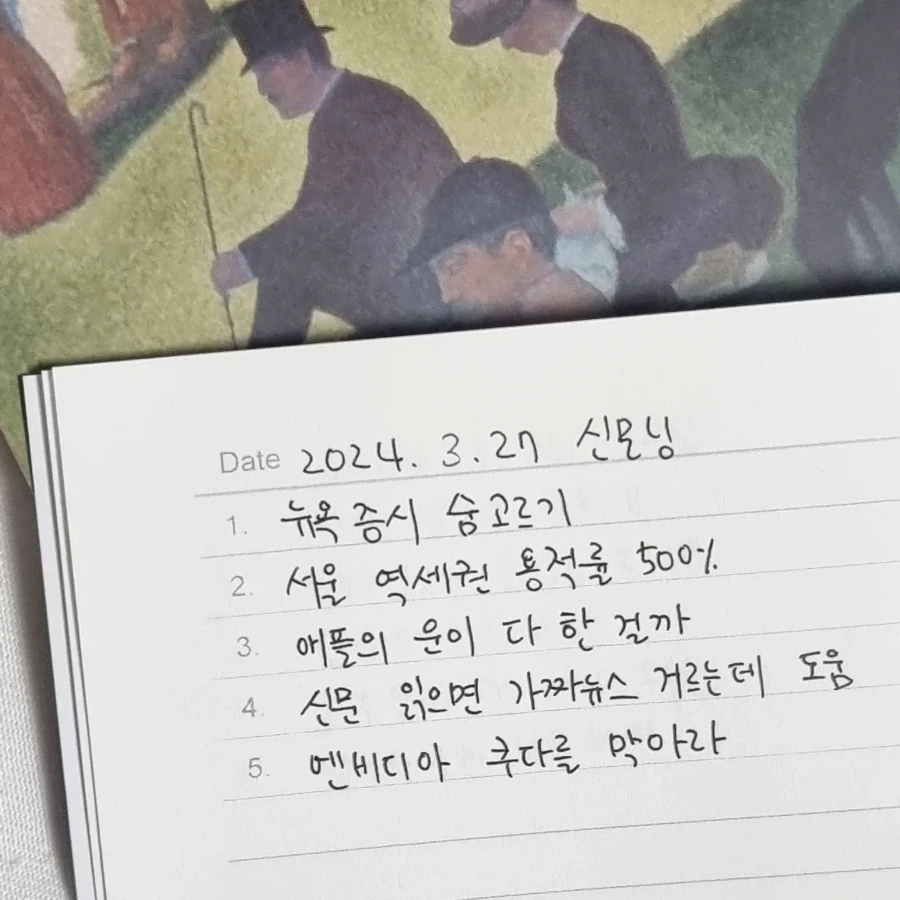 Date 2024. 3. 27 신모닝
1. 뉴욕증시 숨고르기
2. 서울 역세권 용적률 500%
3. 애플의 운이 다 한 걸까
4. 신문 읽으면 가짜뉴스 거르는데 도움
5. 엔비디아 쿠다를 막아라